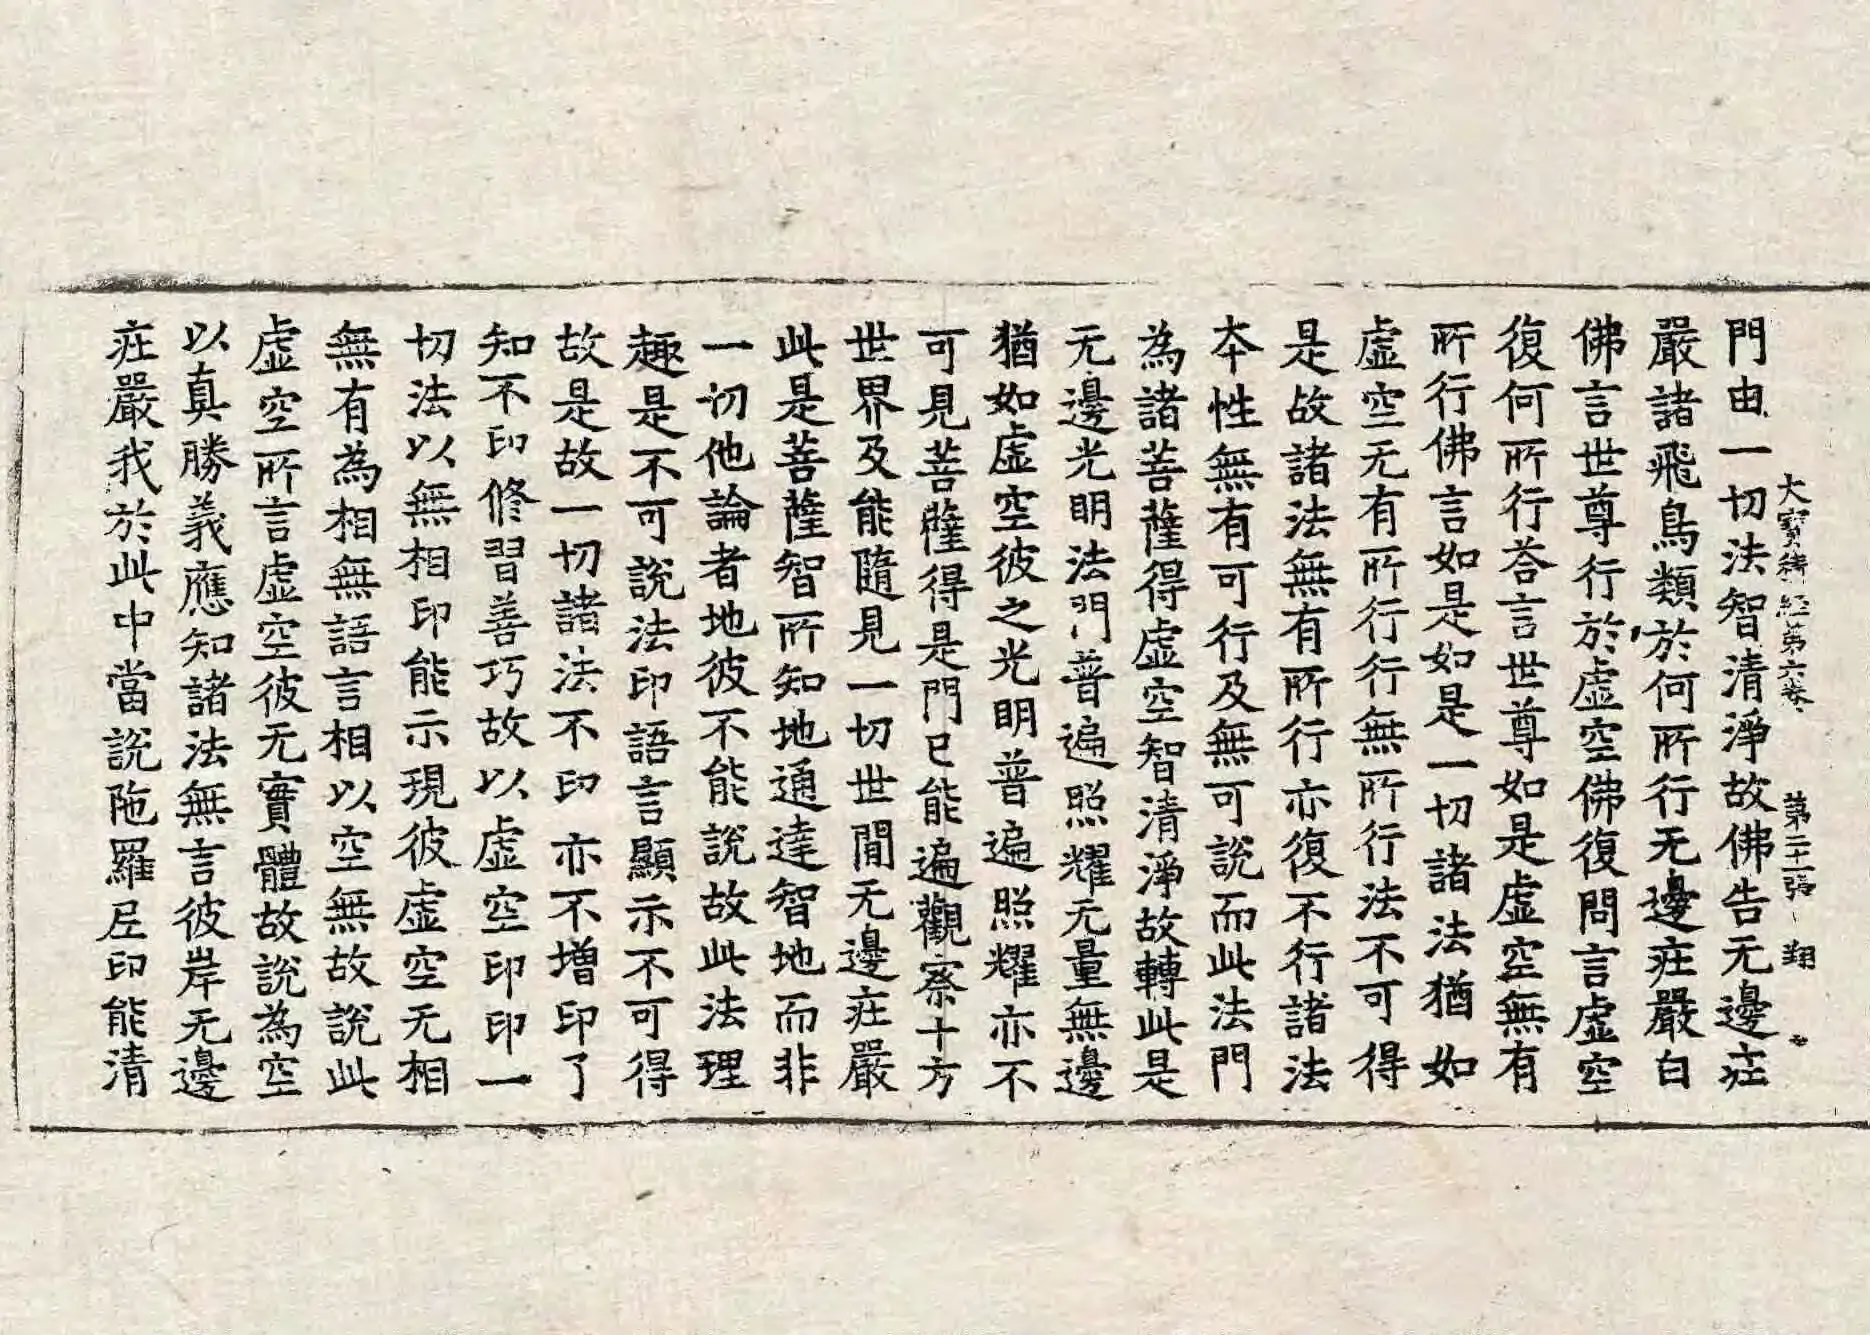 大寶積經第六卷 第二十一張 翔
門由一切法智清淨故佛告无邊莊
嚴諸飛鳥類於何所行无邊莊嚴白
佛言世尊行於虛空佛復問言虛空
復何所行荅言世尊如是虛空無有
所行佛言如是如是一切諸法猶如
虛空无有所行行無所行法不可得
是故諸法無有所行亦復不行諸法
本性無有可行及無可說而此法門
為諸菩薩得虛空智清淨故轉此是
无邊光明法門普遍照耀无量無邊
猶如虛空彼之光明普遍照耀亦不
可見菩薩得是門已能遍觀察十方
世界及能隨見一切世間无邊莊嚴
此是菩薩智所知地通達智地而非
一切他論者地彼不能說故此法理
趣是不可說法印語言顯示不可得
故是故一切諸法不印亦不增印了
知不印修習善巧故以虛空印印一
切法以無相印能示現彼虛空无相
無有為相無語言相以空無故說此
虛空所言虛空彼无實體故說為空
以真勝義應知諸法無言彼岸无邊
莊嚴我於此中當說陁羅尼印能清